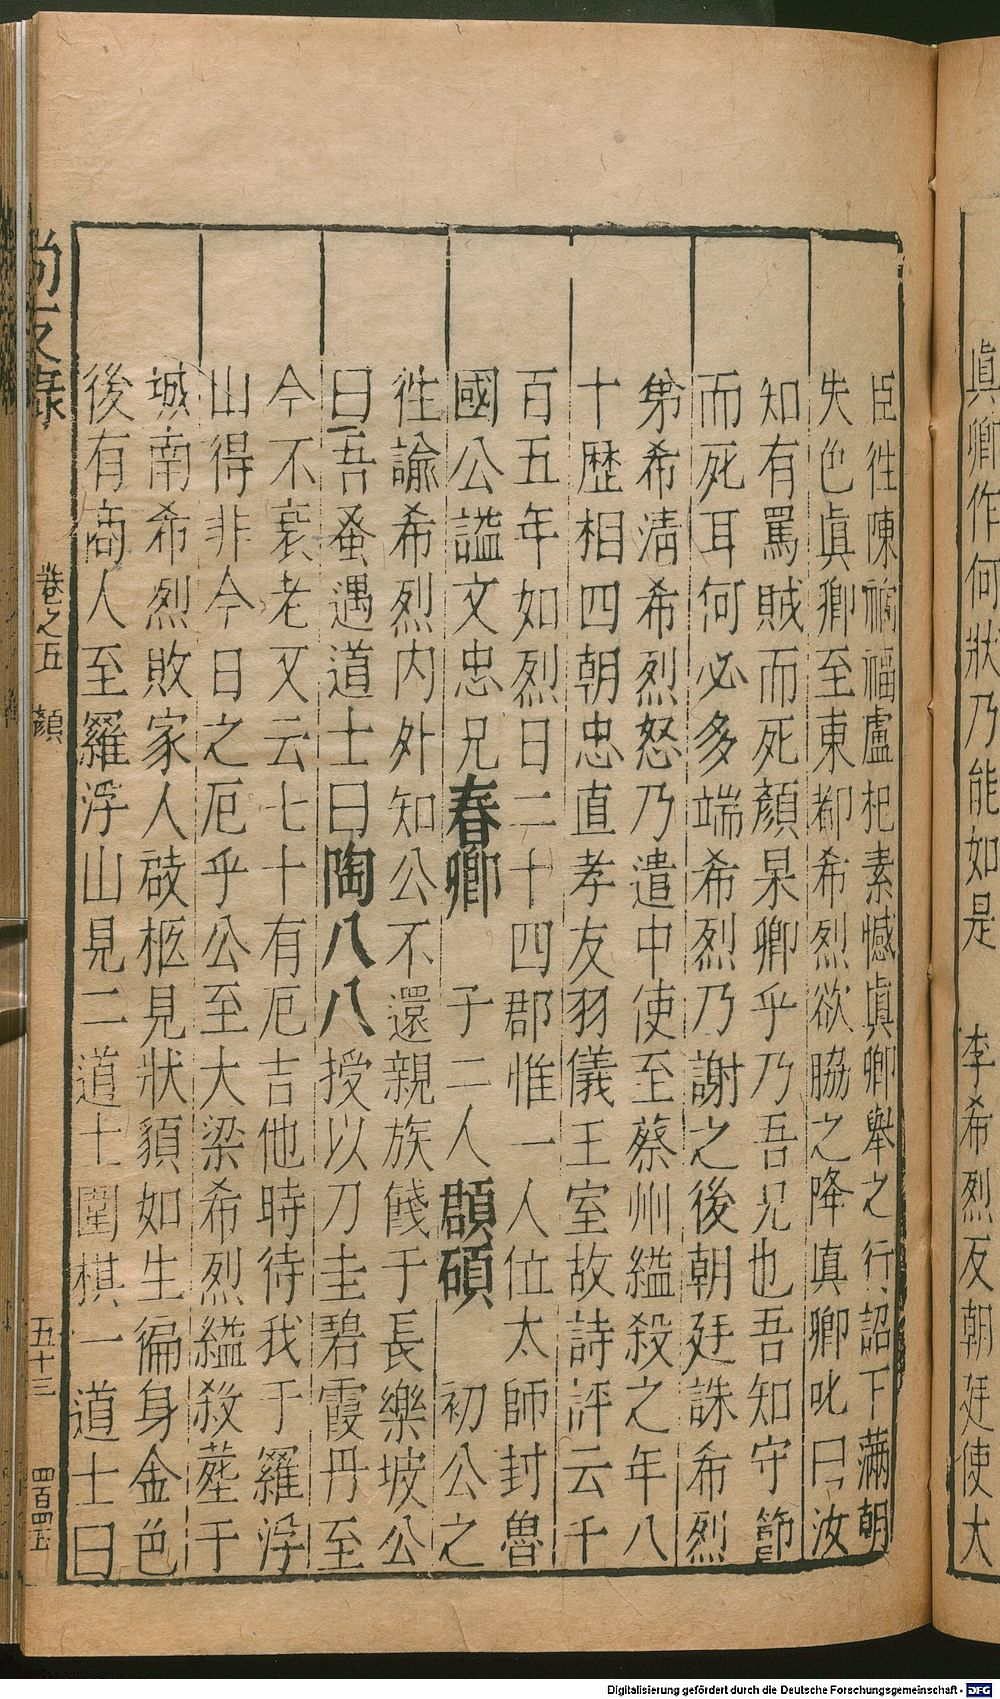 真卿作何狀乃能如是　李希烈反朝廷使大
臣徃陳禍福盧杞素憾真卿舉之行詔下滿朝
失色真卿至東都希烈欲脇之降真卿叱曰汝
知有罵賊而死顏杲卿乎乃吾兄也吾知守節
而死耳何必多端希烈乃謝之後朝廷誅希烈
弟希淸希烈怒乃遣中使至蔡州縊殺之年八
十歷相四朝忠直孝友羽儀王室故詩評云千
百五年如烈日二十四郡惟一人位太師封魯
國公謚文忠兄春卿　子二人頵碩　初公之
徃諭希烈内外知公不還親族餞于長樂坡公
曰吾蚤遇道士曰陶八八授以刀圭碧霞丹至
今不衰老又云七十有厄吉他時待我于羅浮
山得非今日之厄乎公至大梁希烈縊殺塟于
城南希烈敗家人啟柩見狀貌如生徧身金色
後有商人至羅浮山見二道士圍棋一道士曰
尚友錄　卷之五　顏　五十三　四百四五
Digitalisierung gefördert durch die Deutsche Forschungsgemeinschaft - DFG